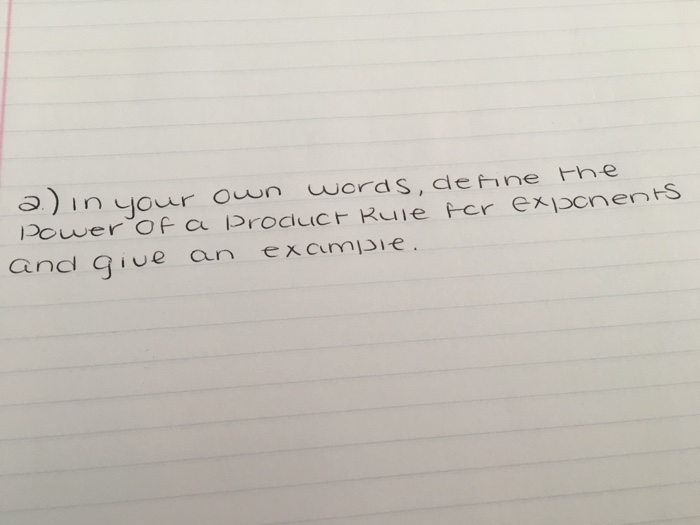 2.) in your own words, define the
Power of a Product Rule for exponents
and give an example.